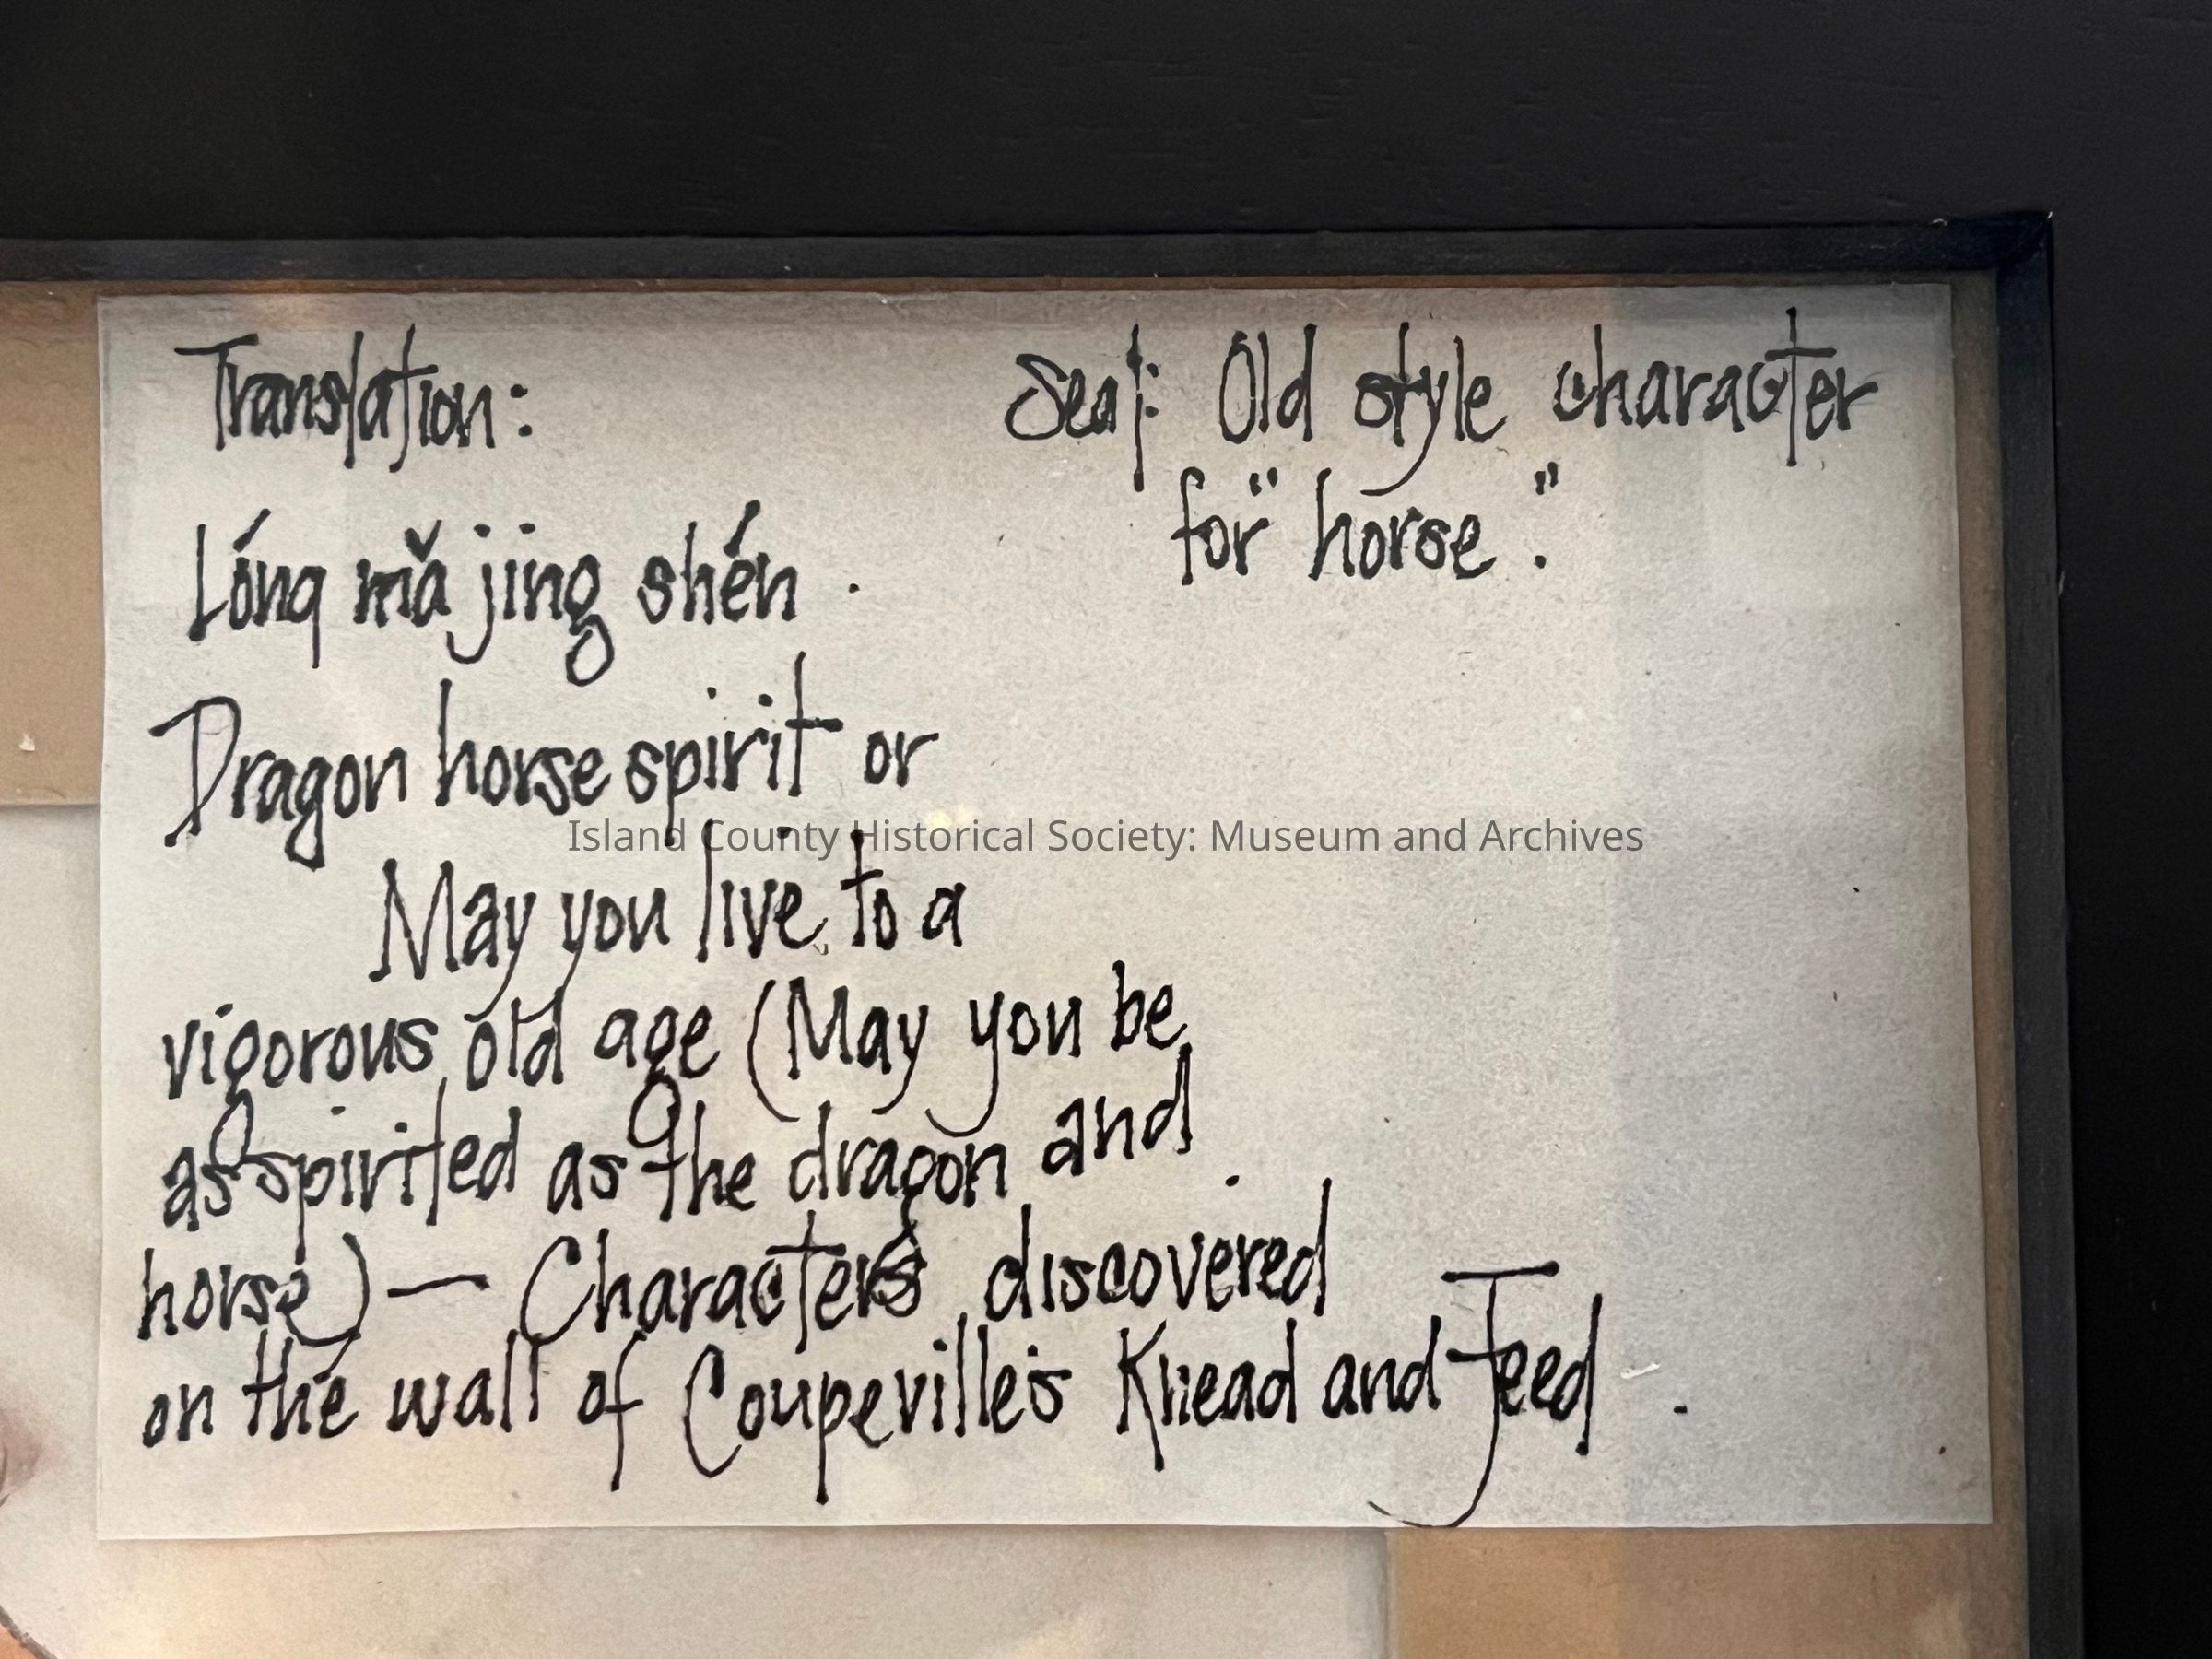 Translation:
Lóng mǎ jing shén.
Dragon horse spirit or
May you live to a
vigorous old age (May you be
as spirited as the dragon and
horse) — Characters discovered
on the wall of Coupeville's Knead and Feed.
Seal: Old style character
for "horse."
Island County Historical Society: Museum and Archives